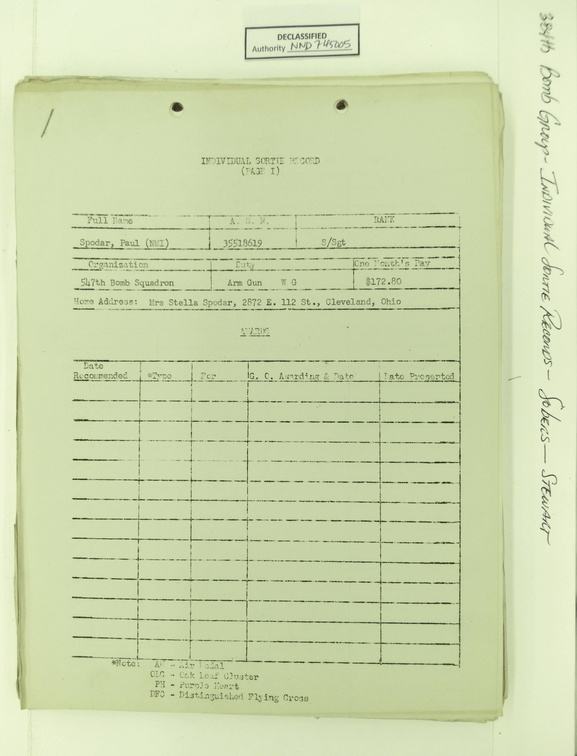 DECLASSIFIED
Authority NND 745005
384th Bomb Group - Individual Sortie Records - Sobers - Stewart
INDIVIDUAL SORTIE RECORD
(PAGE I)
Full Name A. S. N. RANK
Spodar, Paul (NMI) 35518619 S/Sgt
Organization Duty One Month's Pay
547th Bomb Squadron Arm Gun W G $172.80
Home Address: Mrs Stella Spodar, 2872 E. 112 St., Cleveland, Ohio
AWARDS
Date
Recommended *Type For G. O. Awarding & Date Date Presented
*Note: AM - Air Medal
OLC - Oak Leaf Cluster
PH - Purple Heart
DFC - Distinguished Flying Cross